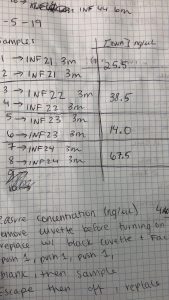 INF 44 6m
-5-19
Samples [DNA] ng/uL
1 → INF21 3m 25.5
2 → INF21 3m
3 → INF22 3m 38.5
4 → INF22 3m
5 → INF23 3m 14.0
6 → INF23 3m
7 → INF24 3m 67.5
8 → INF24 3m
9
10
concentration (ng/uL)
remove cuvette before turning on
replace w/ black cuvette +
push 1, push 1, push 1,
blank, then sample
escape then off, replace